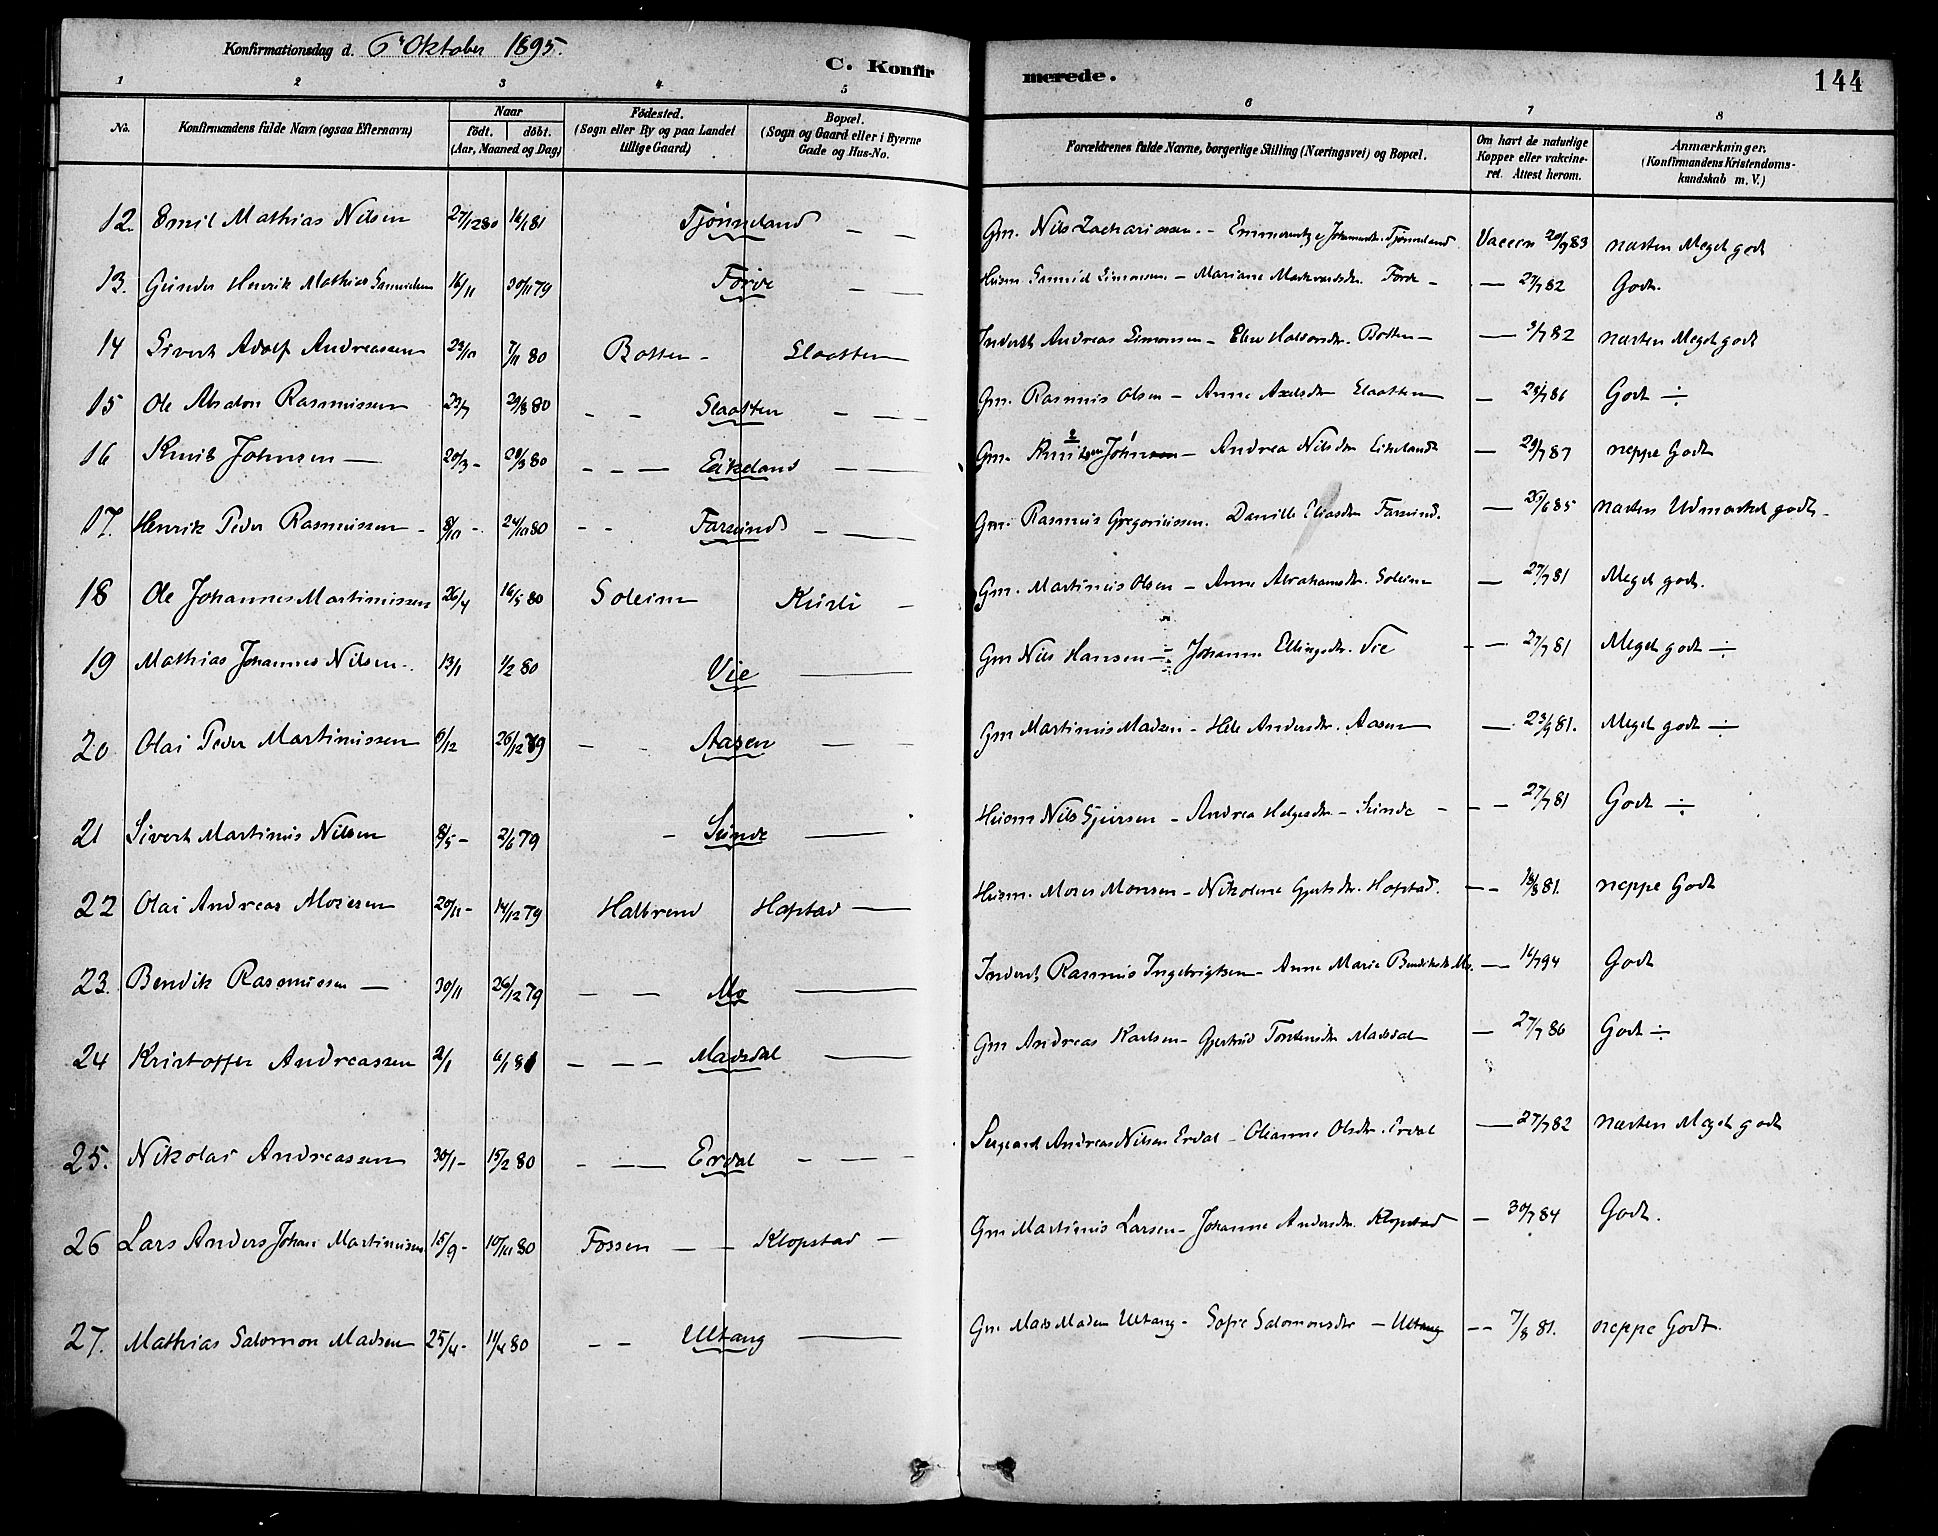 Konfirmationsdag d. 6te Oktober 1895.
C. Konfirmerede. 144
1 2 3 4 5 6 7 8
No. | Konfirmandens fulde Navn (ogsaa Efternavn) | Naar født. døbt. (Aar, Maaned og Dag) | Fødested. (Sogn eller By og paa Landet tillige Gaard) | Bopæl. (Sogn og Gaard eller i Byerne Gade og Hus-No. | Forældrenes fulde Navne, borgerlige Stilling (Næringsvei) og Bopæl. | Om havt de naturlige Kopper eller vakcineret. Attest herom. | Anmærkninger. (Konfirmandens Kristendomskundskab m. V.)
12. Emil Mathias Nilsen 27/12 80 16/1 81 Tjønneland — — Gm. Nils Zachariassen. – Emmerentze Johannesdr. Tjønneland Vaccin 20/9 83 næsten Meget godt
13. Gunder Henrik Mathias Samuelsen 16/11 30/11 79 Førde — — Husm. Samuel Simonsen – Mariane Markvardsdr. Førde – — 27/7 82 Godt.
14 Sivert Adolf Andreassen 23/10 7/11 80 Botten – Slaatten Inderst Andreas Simonsen – Eline Halvorsdr. Botten – — 3/7 82 næsten Meget godt
15 Ole Absalon Rasmussen 22/7 29/8 80 – – Slaatten – — Gm. Rasmus Olsen – Anne Axelsdtr Slaatten — 28/7 86 Godt ÷
16 Knut Johnsen — 20/3 – 29/3 80 – – — Eikeland — — Gm. Knutsen John – Andrea Nilsdtr Eikeland — 29/7 87 neppe Godt
17. Henrik Peder Rasmussen – 8/10 – 24/10 80 – – Farsund – — Gm. Rasmus Gregoriussen. Danielle Eliasdtr Farsund. — 26/6 85 næsten Udmærket godt –
18 Ole Johannes Martinussen 26/4 16/5 80 Soleim Kusli – Gm. Martinus Olsen – Anne Abrahamsdtr. Soleim — 27/7 81 Meget godt.
19 Mathias Johannes Nilsen. 13/1 1/2 80 Vie — Gm Nils Hansen – Johanne Ellingsdtr. Vie – — 27/7 81 Meget godt ÷
20 Olai Peder Martinussen 6/12 26/12 79 – – Aasen — – Gm Martinus Madsen – Hele Andersdtr. Aasen — 23/9 81. Meget godt ÷
21 Sivert Martinus Nilsen 8/5 – 2/6 79 – Sunde — Husm Nils Sjursen – Andrea Helgesdtr. – Sunde – – – 27/7 81 Godt ÷
22 Olai Andreas Mosesen 20/11 – 14/12 79 Halbrend Hafstad — Husm. Moses Monsen – Nikoline Gjertsdtr. Hafstad. – – 18/8 81. neppe Godt
23. Bendik Rasmussen — 30/11 26/12 79 – — Mo — Inderst Rasmus Ingebrigtsen – Anne Marie Bendiksdtr Mo. — 16/7 94 Godt
24 Kristoffer Andreassen 2/1 6/1 81 – – – Mausdal — Gm Andreas Karlsen – Gjertrud Torstensdtr Mausdal — 27/7 86 Godt ÷
25. Nikolai Andreassen 30/1 – 15/2 80 – – — Erdal – — – Sergeant Andreas Nilsen Erdal – Oleanne Olsdtr. Erdal — 27/7 82 næsten Meget godt
26 Lars Anders Johan Martinusen 15/9 – 10/10 80 Fossen – – Klopstad – Gm Martinus Larsen – Johanne Andersdtr. Klopstad — 30/7 84 Godt.
27. Mathias Salomon Madsen 25/4 – 11/4 80 – – Ultang — Gm Mads Madsen Ultang – Sofie Salomonsdtr – Ultang – – 7/8 81. neppe Godt.